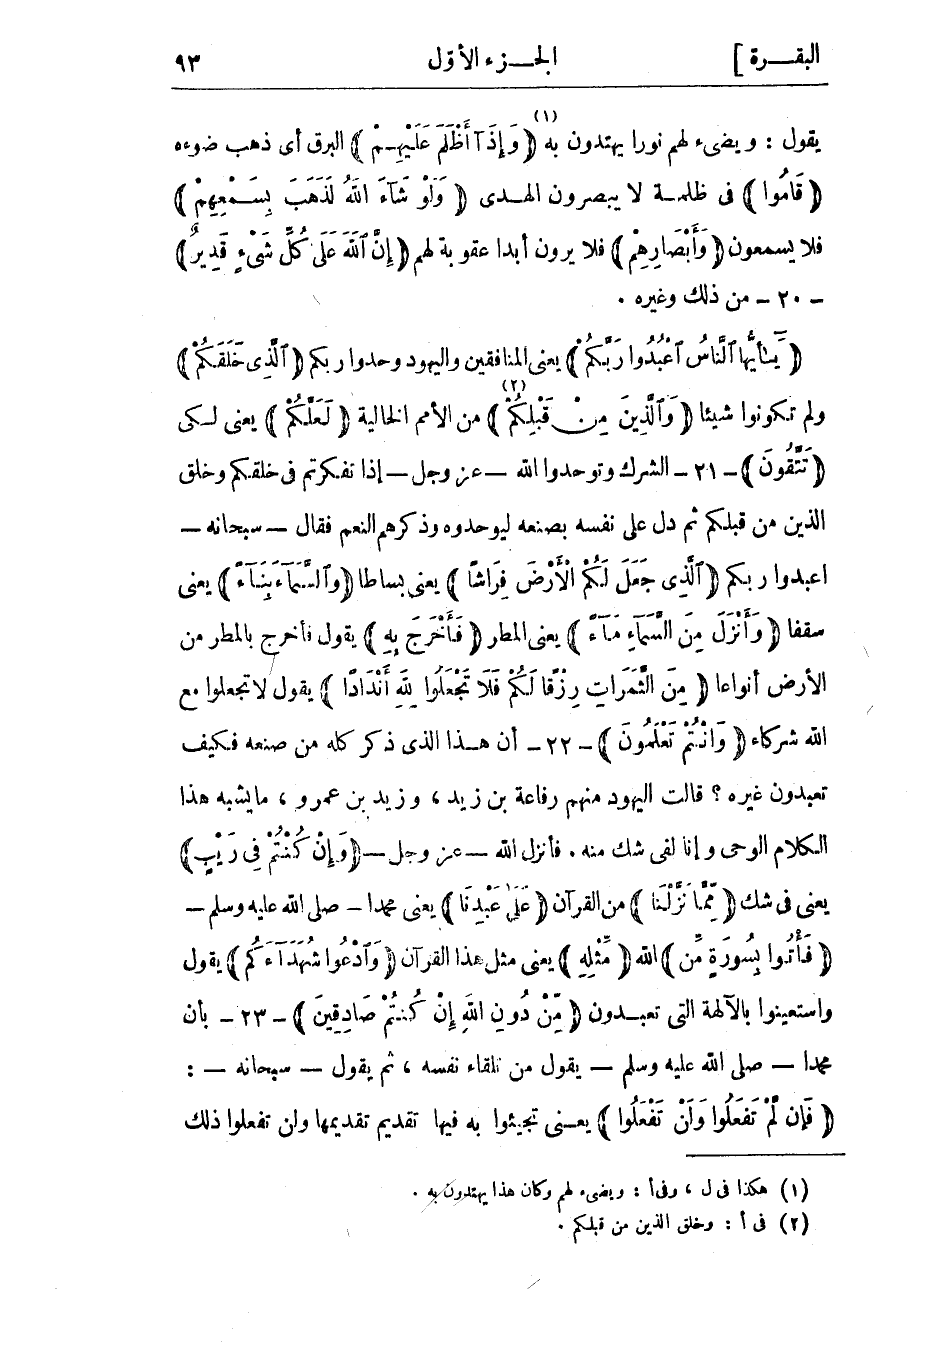 البقـــرة ]
الجـــزء الأوّل
٩٣
يقول : ويضىء لهم نورا يهتدون به (١) ﴿ وَإِذَآ أَظْلَمَ عَلَيْهِـمْ ﴾ البرق أى ذهب ضوءه
﴿ قَامُوا ﴾ فى ظلمـة لا يبصرون الهـدى ﴿ وَلَوْ شَآءَ اللَّهُ لَذَهَبَ بِسَـمْعِهِمْ ﴾
فلا يسمعون ﴿ وَأَبْصَارِهِمْ ﴾ فلا يرون أبدا عقوبة لهم ﴿ إِنَّ ٱللَّهَ عَلَىٰ كُلِّ شَىْءٍ قَدِيرٌ ﴾
– ٢٠ – من ذلك وغيره .
﴿ يَـٰٓأَيُّهَا ٱلنَّاسُ ٱعْبُدُوا رَبَّكُمُ ﴾ يعنى المنافقين واليهود وحدوا ربكم ﴿ ٱلَّذِى خَلَقَكُمْ ﴾
ولم تكونوا شيئا ﴿ وَٱلَّذِينَ مِنْ قَبْلِكُمْ ﴾ (٢) من الأمم الخالية ﴿ لَعَلَّكُمْ ﴾ يعنى لـكى
﴿ تَتَّقُونَ ﴾ – ٢١ – الشرك وتوحدوا الله – عز وجل – إذا تفكرتم فى خلقكم وخلق
الذين من قبلكم ثم دل على نفسه بصنعه ليوحدوه وذكرهم النعم فقال – سبحانه –
اعبدوا ربكم ﴿ ٱلَّذِى جَعَلَ لَكُمُ الْأَرْضَ فِرَاشًا ﴾ يعنى بساطا ﴿ وَٱلسَّمَآءَ بِنَآءً ﴾ يعنى
سقفا ﴿ وَأَنْزَلَ مِنَ السَّمَآءِ مَـآءً ﴾ يعنى المطر ﴿ فَأَخْرَجَ بِهِ ﴾ يقول فأخرج بالمطر من
الأرض أنواعا ﴿ مِنَ الثَّمَرَاتِ رِزْقًا لَكُمْ فَلَا تَجْعَلُوا لِلَّهِ أَنْدَادًا ﴾ يقول لا تجعلوا مع
الله شركاء ﴿ وَأَنْتُمْ تَعْلَمُونَ ﴾ – ٢٢ – أن هـذا الذى ذكر كله من صنعه فـكيف
تعبدون غيره ؟ قالت اليهود منهم رفاعة بن زيد ، وزيد بن عمرو ، مايشبه هذا
الكلام الوحى وإنا لفى شك منه . فأنزل الله – عز وجل – ﴿ وَإِنْ كُنْتُمْ فِى رَيْبٍ ﴾
يعنى فى شك ﴿ مِّمَّا نَزَّلْنَا ﴾ من القرآن ﴿ عَلَىٰ عَبْدِنَا ﴾ يعنى محمدا – صلى الله عليه وسلم –
﴿ فَأْتُـوا بِسُورَةٍ مِّن ﴾ الله ﴿ مِّثْلِهِ ﴾ يعنى مثل هذا القرآن ﴿ وَٱدْعُوا شُهَدَآءَكُم ﴾ يقول
واستعينوا بالآلهة التى تعبـدون ﴿ مِّنْ دُونِ اللَّهِ إِنْ كُنتُمْ صَادِقِينَ ﴾ – ٢٣ – بأن
محمدا – صلى الله عليه وسلم – يقول من تلقاء نفسه ، ثم يقول – سبحانه – :
﴿ فَإِن لَّمْ تَفْعَلُوا وَلَنْ تَفْعَلُوا ﴾ يعـنى تجيئوا به فيها تقديم تقديمها ولن تفعلوا ذلك
(١) هكذا فى ل ، وفى أ : ويضىء لهم وكان هذا يهتدون به .
(٢) فى أ : وخلق الذين من قبلكم .